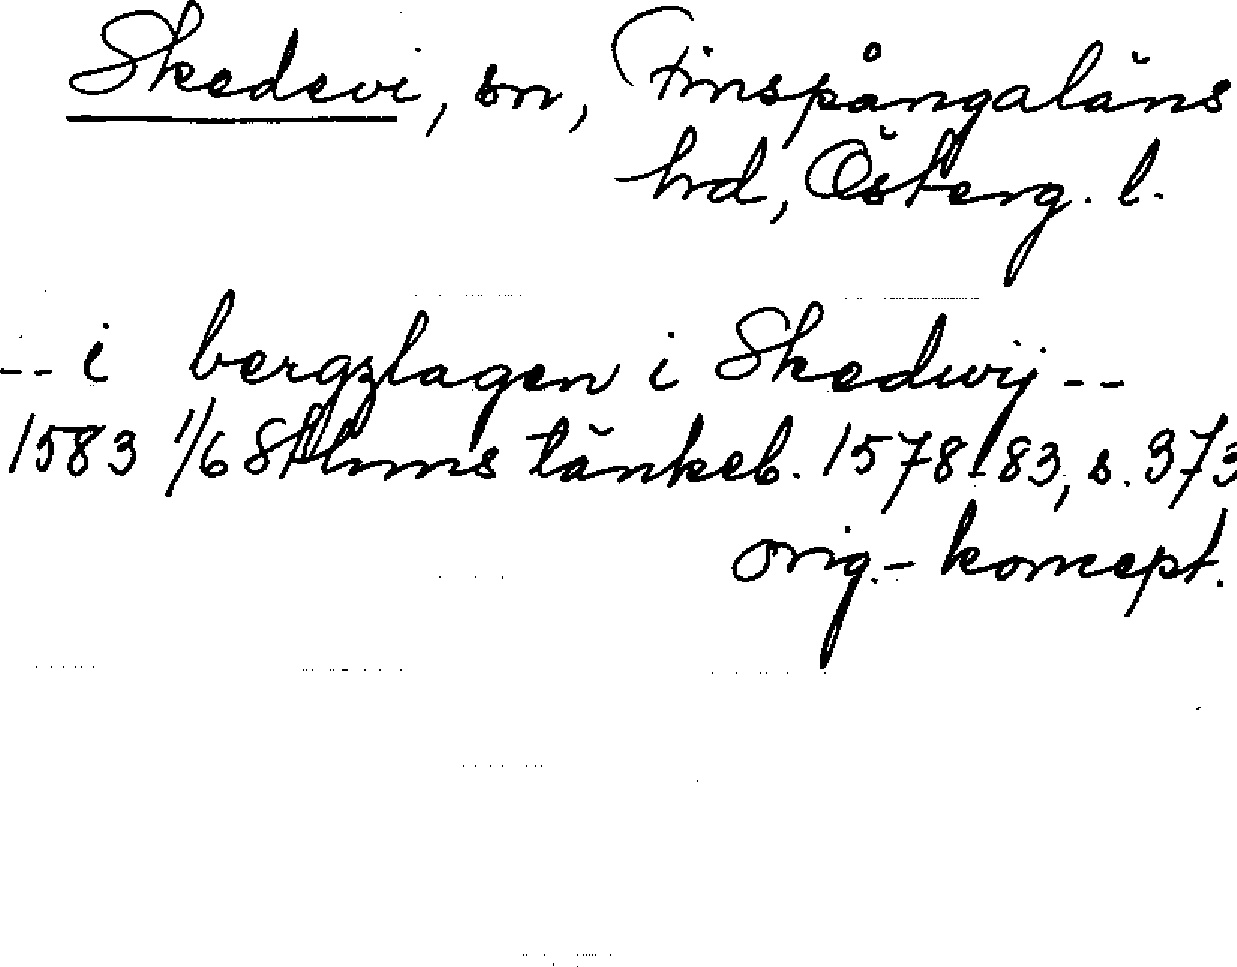 Skedevi, sn, Finspångaläns
hrd, Österg. l.
-- i bergzlagen i Skedwij --
1583 1/6 Sthms tänkeb. 1578-83, s. 373
orig.- koncept.